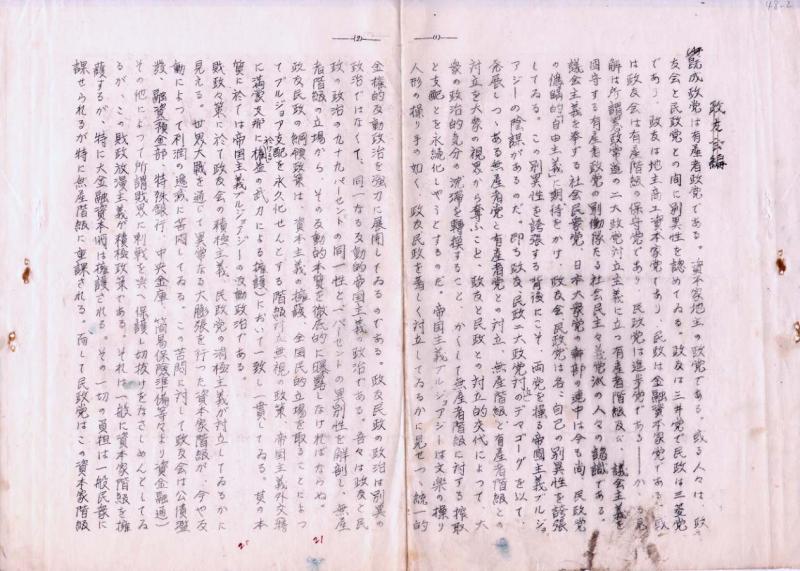 48-2
(1)
政友会編
既成政党は有産者政党である。資本家地主の政党である。或る人々は、政
友会と民政党との間に別異性を認めてゐる。政友は三井党で民政は三菱党
であり、政友は地主商工資本家党であり、民政は金融資本家党である。或
は政友会は有産階級の保守党であり、民政党は進歩党である――かゝる見
解は所謂憲政常道の二大政党対立主義に立つ有産者階級及び、議会主義を
固守する有産者政党の別働隊たる社会民主々義党派の人々の認識である。
議会主義を奉ずる社会民衆党、日本大衆党の幹部の連中は今も尚、民政党
の偽瞞的自由主義に期待をかけ、政友会民政党は各、自己の別異性を誇張
してゐる。この別異性を誇張する背後にこそ、両党を操る帝国主義ブルジョ
アジーの陰謀があるのだ。即ち政友民政二大政党対立のデマゴーグを以て、
発展しつゝある無産者党と有産者党との対立、無産者階級と有産者階級との
対立を大衆の視界から奪ふこと、政友と民政との対立的交代によつて、大
衆の政治的気分の沈滞を転換すること、かくして無産者階級に対する搾取
と支配とを永続化しやうとするのだ。帝国主義ブルジョアジーは文楽の操り
人形の操り手の如く、政友民政を著しく対立してゐるかに見せつゝ統一的
(2)
金権的反動政治を強力に展開してゐるのである。政友民政の政治は別異の
政治ではなくて、同一なる反動的帝国主義の政治である。吾々は政友と民
政の政治の九十九パーセントの同一性と一パーセントの異別性を解剖し、無産
者階級の立場から、その反動的本質を徹底的に曝露しなければならぬ。
政友民政の綱領政策は、資本主義の擁護、全国民的立場を取ることによつ
てブルジョア支配を永久化せんとする階級対立無視の政策、帝国主義外交殊
に満蒙支那に於ける権益の武力による擁護等において一致し一貫してゐる。其の本
質に於ては帝国主義ブルジアジーの反動政治である。
財政々策に於て政友会の積極主義、民政党の消極主義が対立してゐるかに
見える。世界大戦を通じて異常なる大膨張を行つた資本家階級が、今や反
動によつて利潤の逓減に苦悶してゐる。この苦悶に対して政友会は公債濫
発、融資(預金部、特殊銀行、中央金庫、簡易保険準備等々より資金融通)
その他によつて所謂財界に刺戟を与へ保護し切抜けをなさしめんとしてゐ
るが、この財政放漫主義が積極政策である。それは一般に資本家階級を擁
護するが、特に大金融資本閥は擁護される。その一切の負担は一般民衆に
課せられるが特に無産階級に重課される。而して民政党はこの資本家階級
21